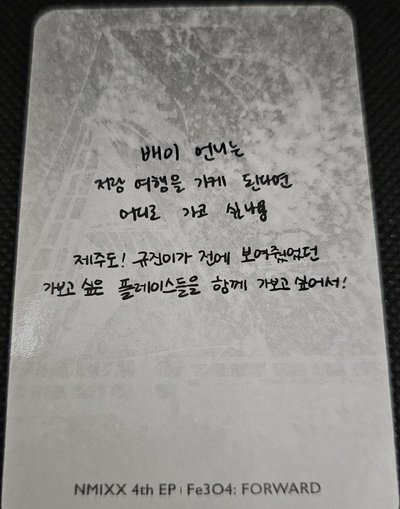 배이 언니는
저랑 여행을 가게 된다면
어디로 가고 싶나용
제주도! 규진이가 전에 보여줬었던
가보고 싶은 플레이스들을 함께 가보고 싶어서!
NMIXX 4th EP | Fe3O4: FORWARD